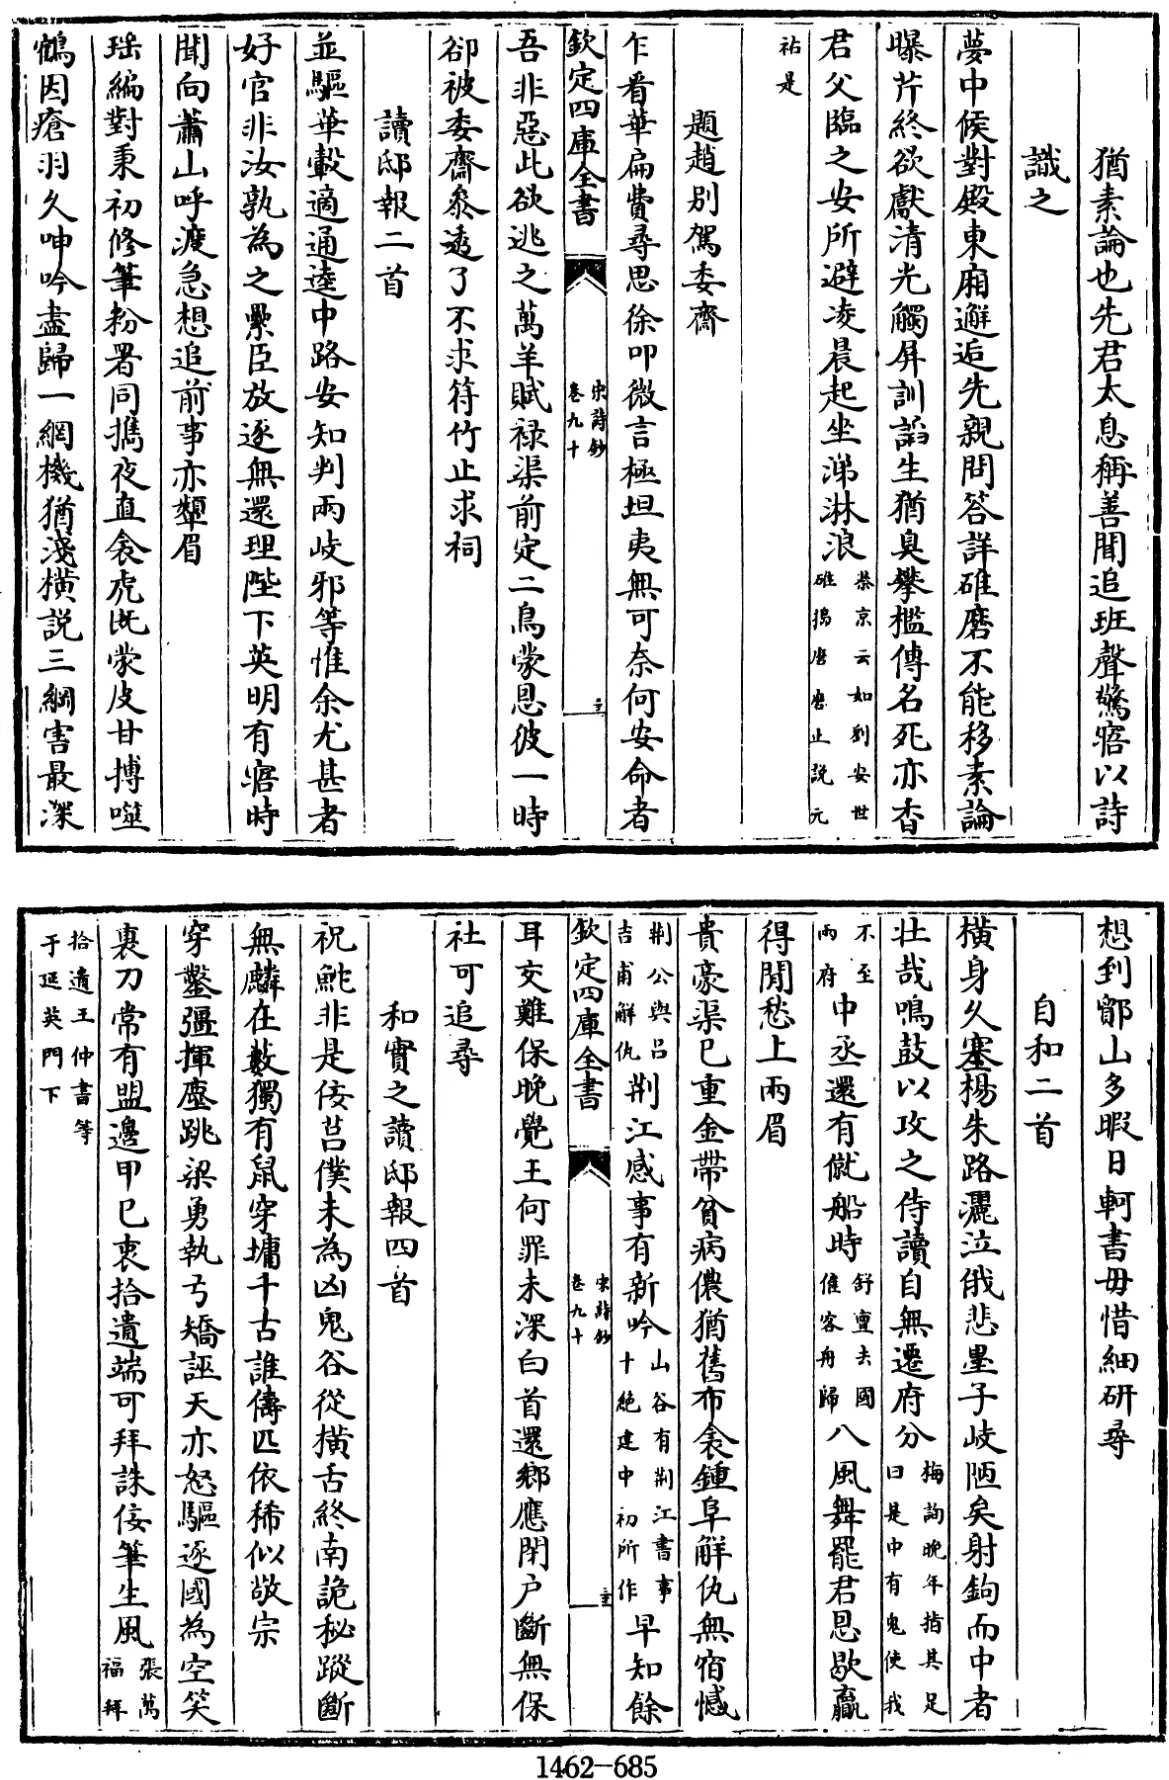 猶素論也先君太息稱善聞追班聲驚寤以詩
識之
夢中候對殿東廂邂逅先親問答詳碓磨不能移素論
曝芹終欲獻清光觸屏訓謟生猶臭攀檻傳名死亦香
君父臨之安所避凌晨起坐涕淋浪蔡京云如劉安世
碓搗磨磨止說元
祐是
題趙別駕委齋
乍看華扁費尋思徐叩微言極坦夷無可奈何安命者
欽定四庫全書
宋詩鈔
卷九十
吾非惡此欲逃之萬羊賦禄渠前定二鳥蒙恩彼一時
卻被委齋參透了不求符竹止求祠
讀邸報二首
並驅華轂適通逵中路安知判兩岐邪等惟余尤甚者
好官非汝孰為之纍臣放逐無還理陛下英明有寤時
聞向蕭山呼渡急想追前事亦顰眉
瑤編對秉初修筆粉署同攜夜直衾虎旣蒙皮甘搏噬
鶴因瘡羽久呻吟盡歸一網機猶淺橫説三綱害最深
想到鄮山多暇日軻書毋惜細研尋
自和二首
橫身久塞楊朱路灑泣俄悲墨子岐陋矣射鉤而中者
壯哉鳴鼓以攻之侍讀自無遷府分梅詢晚年指其足
曰是中有鬼使我
不至
兩府中丞還有僦船時舒亶去國
僱客舟歸八風舞罷君恩歇贏
得閒愁上兩眉
貴豪渠已重金帶貧病儂猶舊布衾鍾阜解仇無宿憾
荆公與呂
吉甫解仇荆江感事有新吟山谷有荆江書事
十絶建中初所作早知餘
欽定四庫全書
宋詩鈔
卷九十
耳交難保晚覺王何罪未深白首還鄉應閉户斷無保
社可追尋
和實之讀邸報四首
祝鮀非是佞莒僕未為凶鬼谷從横舌終南詭秘蹤斷
無麟在藪獨有鼠穿墉千古誰儔匹依稀似敬宗
穿鑿彊揮塵跳梁勇執弓矯誣天亦怒驅逐國為空笑
裏刀常有盟邊甲已衷拾遺端可拜誅佞筆生風張萬
福拜
拾遺王仲書等
于延英門下
1462-685